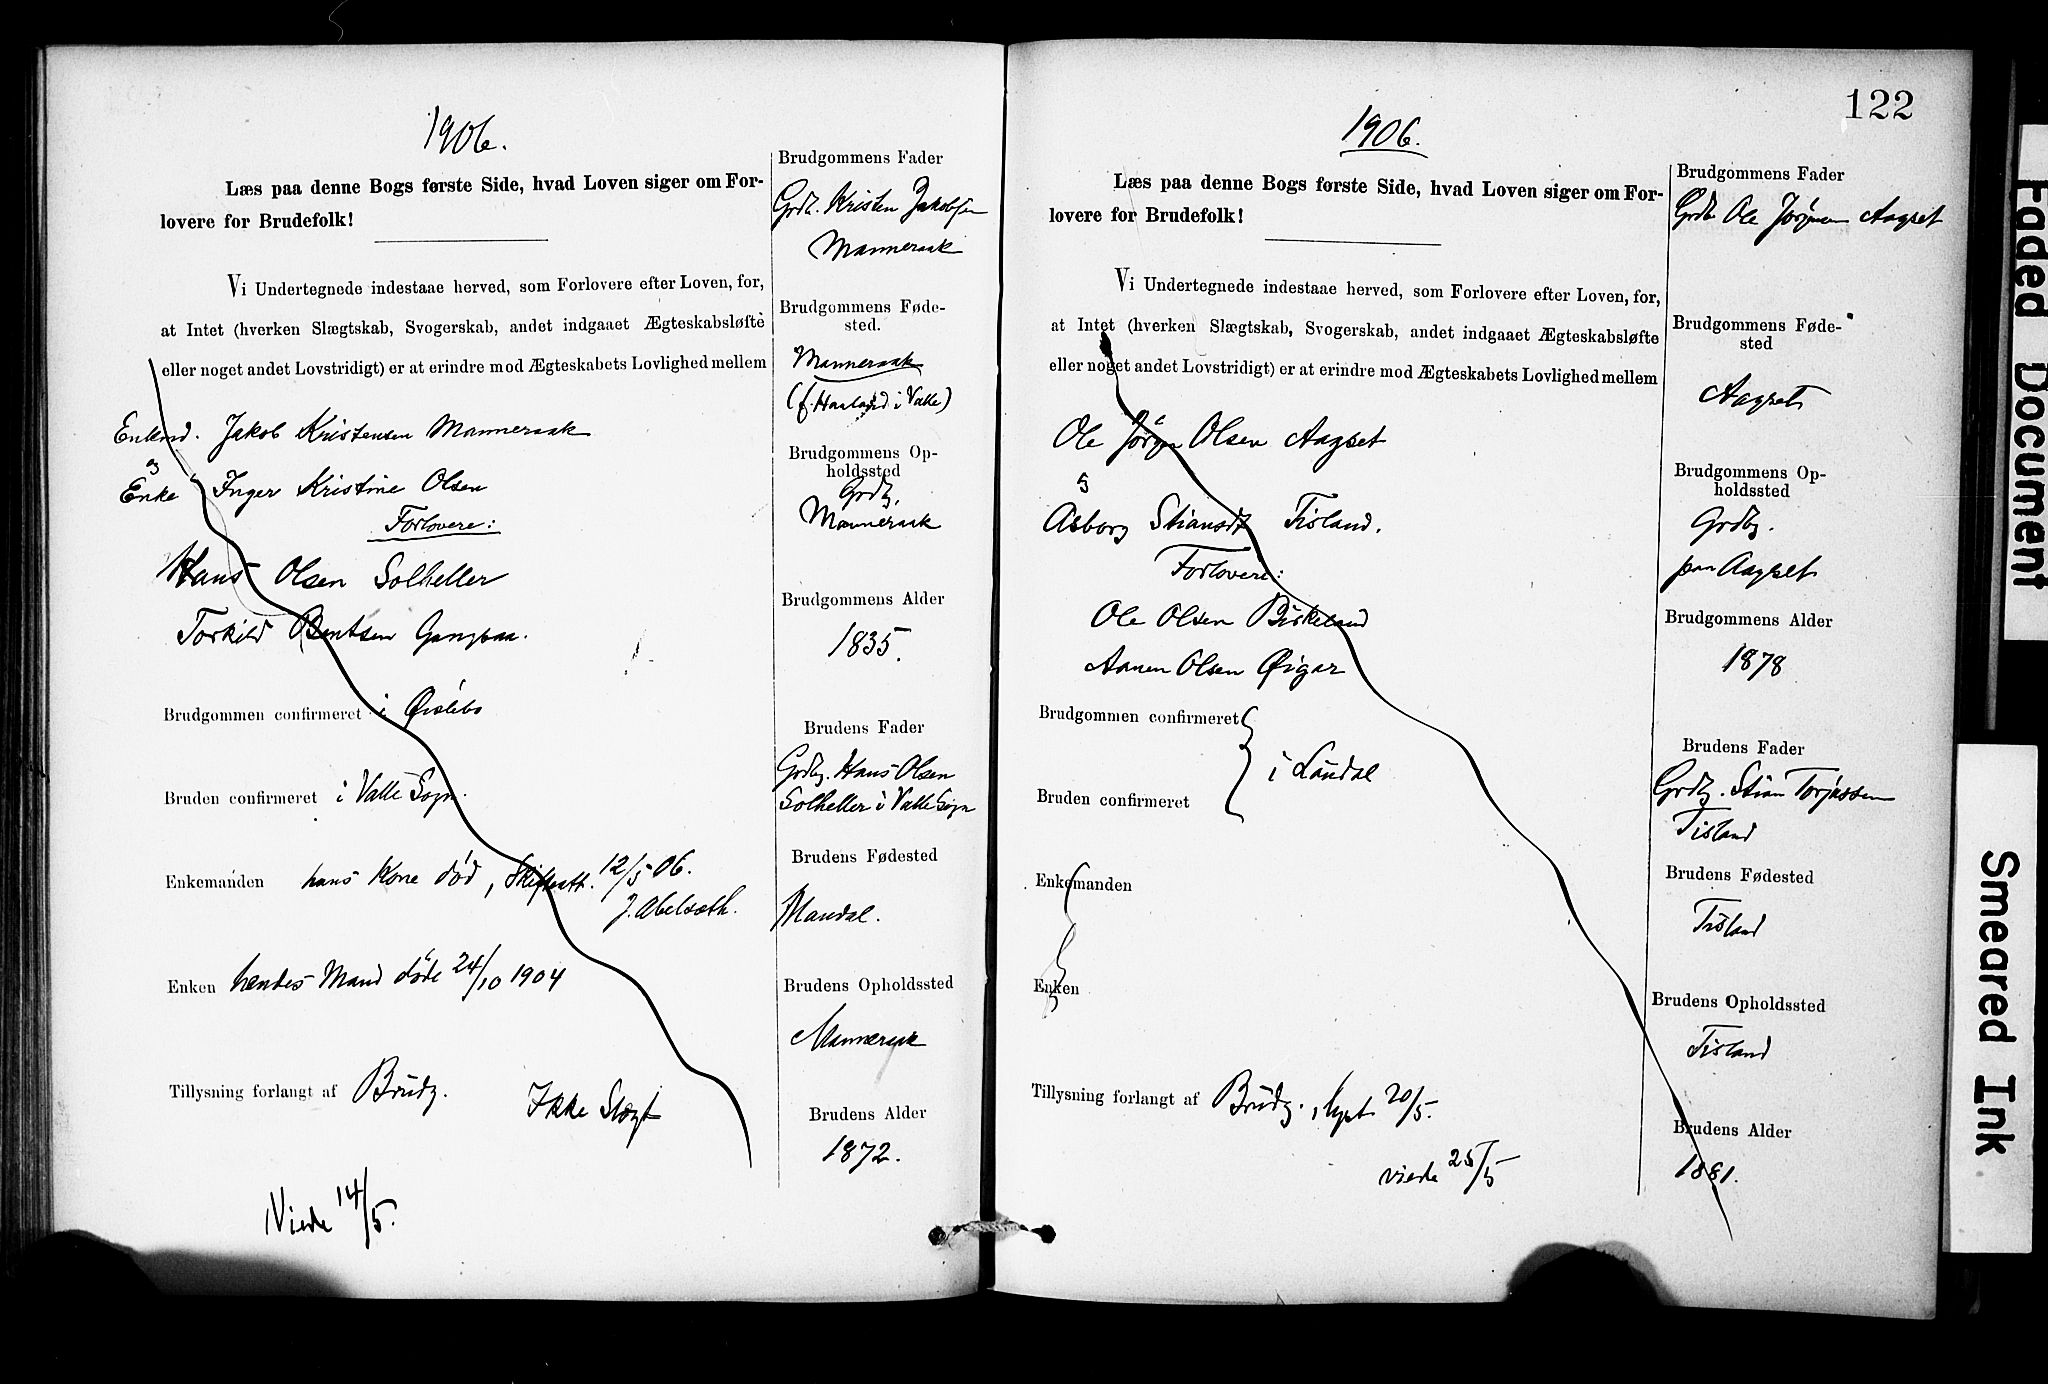 1906.
Læs paa denne Bogs første Side, hvad Loven siger om For-
lovere for Brudefolk!
Vi Undertegnede indestaae herved, som Forlovere efter Loven, for,
at Intet (hverken Slægtskab, Svogerskab, andet indgaaet Ægteskabsløfte
eller noget andet Lovstridigt) er at erindre mod Ægteskabets Lovlighed mellem
Enkmd. Jakob Kristensen Manneraak
og
Enke Inger Kristine Olsen
Forlovere:
Hans Olsen Solheller
Torkild Bentsen
Brudgommen confirmeret i Øislebø
Bruden confirmeret i Valle Sogn.
Enkemanden hans Kone død, Skifteatt. 12/5 06.
J. Abelsæth.
Enken hendes Mand døde 24/10 1904
Tillysning forlangt af Brudg.
Ikke Slægt
Viede 14/5.
Brudgommens Fader
Grdb. Kristen Jakobsen
Manneraak
Brudgommens Føde-
sted.
Manneraak
(f. Haaland i Valle)
Brudgommens Op-
holdssted
Grdbg.
Manneraak
Brudgommens Alder
1835.
Brudens Fader
Grdbg. Hans Olsen
Solheller i Valle Sogn
Brudens Fødested
Mandal.
Brudens Opholdssted
Manneraak
Brudens Alder
1872.
122
1906.
Læs paa denne Bogs første Side, hvad Loven siger om For-
lovere for Brudefolk!
Vi Undertegnede indestaae herved, som Forlovere efter Loven, for,
at Intet (hverken Slægtskab, Svogerskab, andet indgaaet Ægteskabsløfte
eller noget andet Lovstridigt) er at erindre mod Ægteskabets Lovlighed mellem
Ole Jørgen Olsen Aagset
og
Asborg Stiansdt Tisland.
Forlovere:
Ole Olsen Birkeland
Aanen Olsen Øigar
Brudgommen confirmeret
i Laudal
Bruden confirmeret
Enkemanden
Enken
Tillysning forlangt af Brudg., lyst 20/5.
viede 25/5
Brudgommens Fader
Grdb. Ole Jørgensen Aagset
Brudgommens Føde-
sted
Aagset
Brudgommens Op-
holdssted
Grdbg.
paa Aagset
Brudgommens Alder
1878
Brudens Fader
Grdbg. Stian Torjussen
Tisland
Brudens Fødested
Tisland
Brudens Opholdssted
Tisland
Brudens Alder
1881.
Faded Document
Smeared Ink